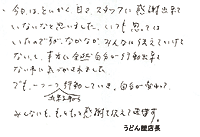 今回は、とにかく日々スタッフに感謝出来て
いないなと思いました。いつも思っては
いたのですが、なかなかみんなに伝えていけて
ないし、本当に全然自分が行動出来て
ない事に気づかされました。
でも、一つ一つ行動していき、自分が変わって、
みんなにも、もっともっと感謝を伝えて頑張ります。
うどん館店長